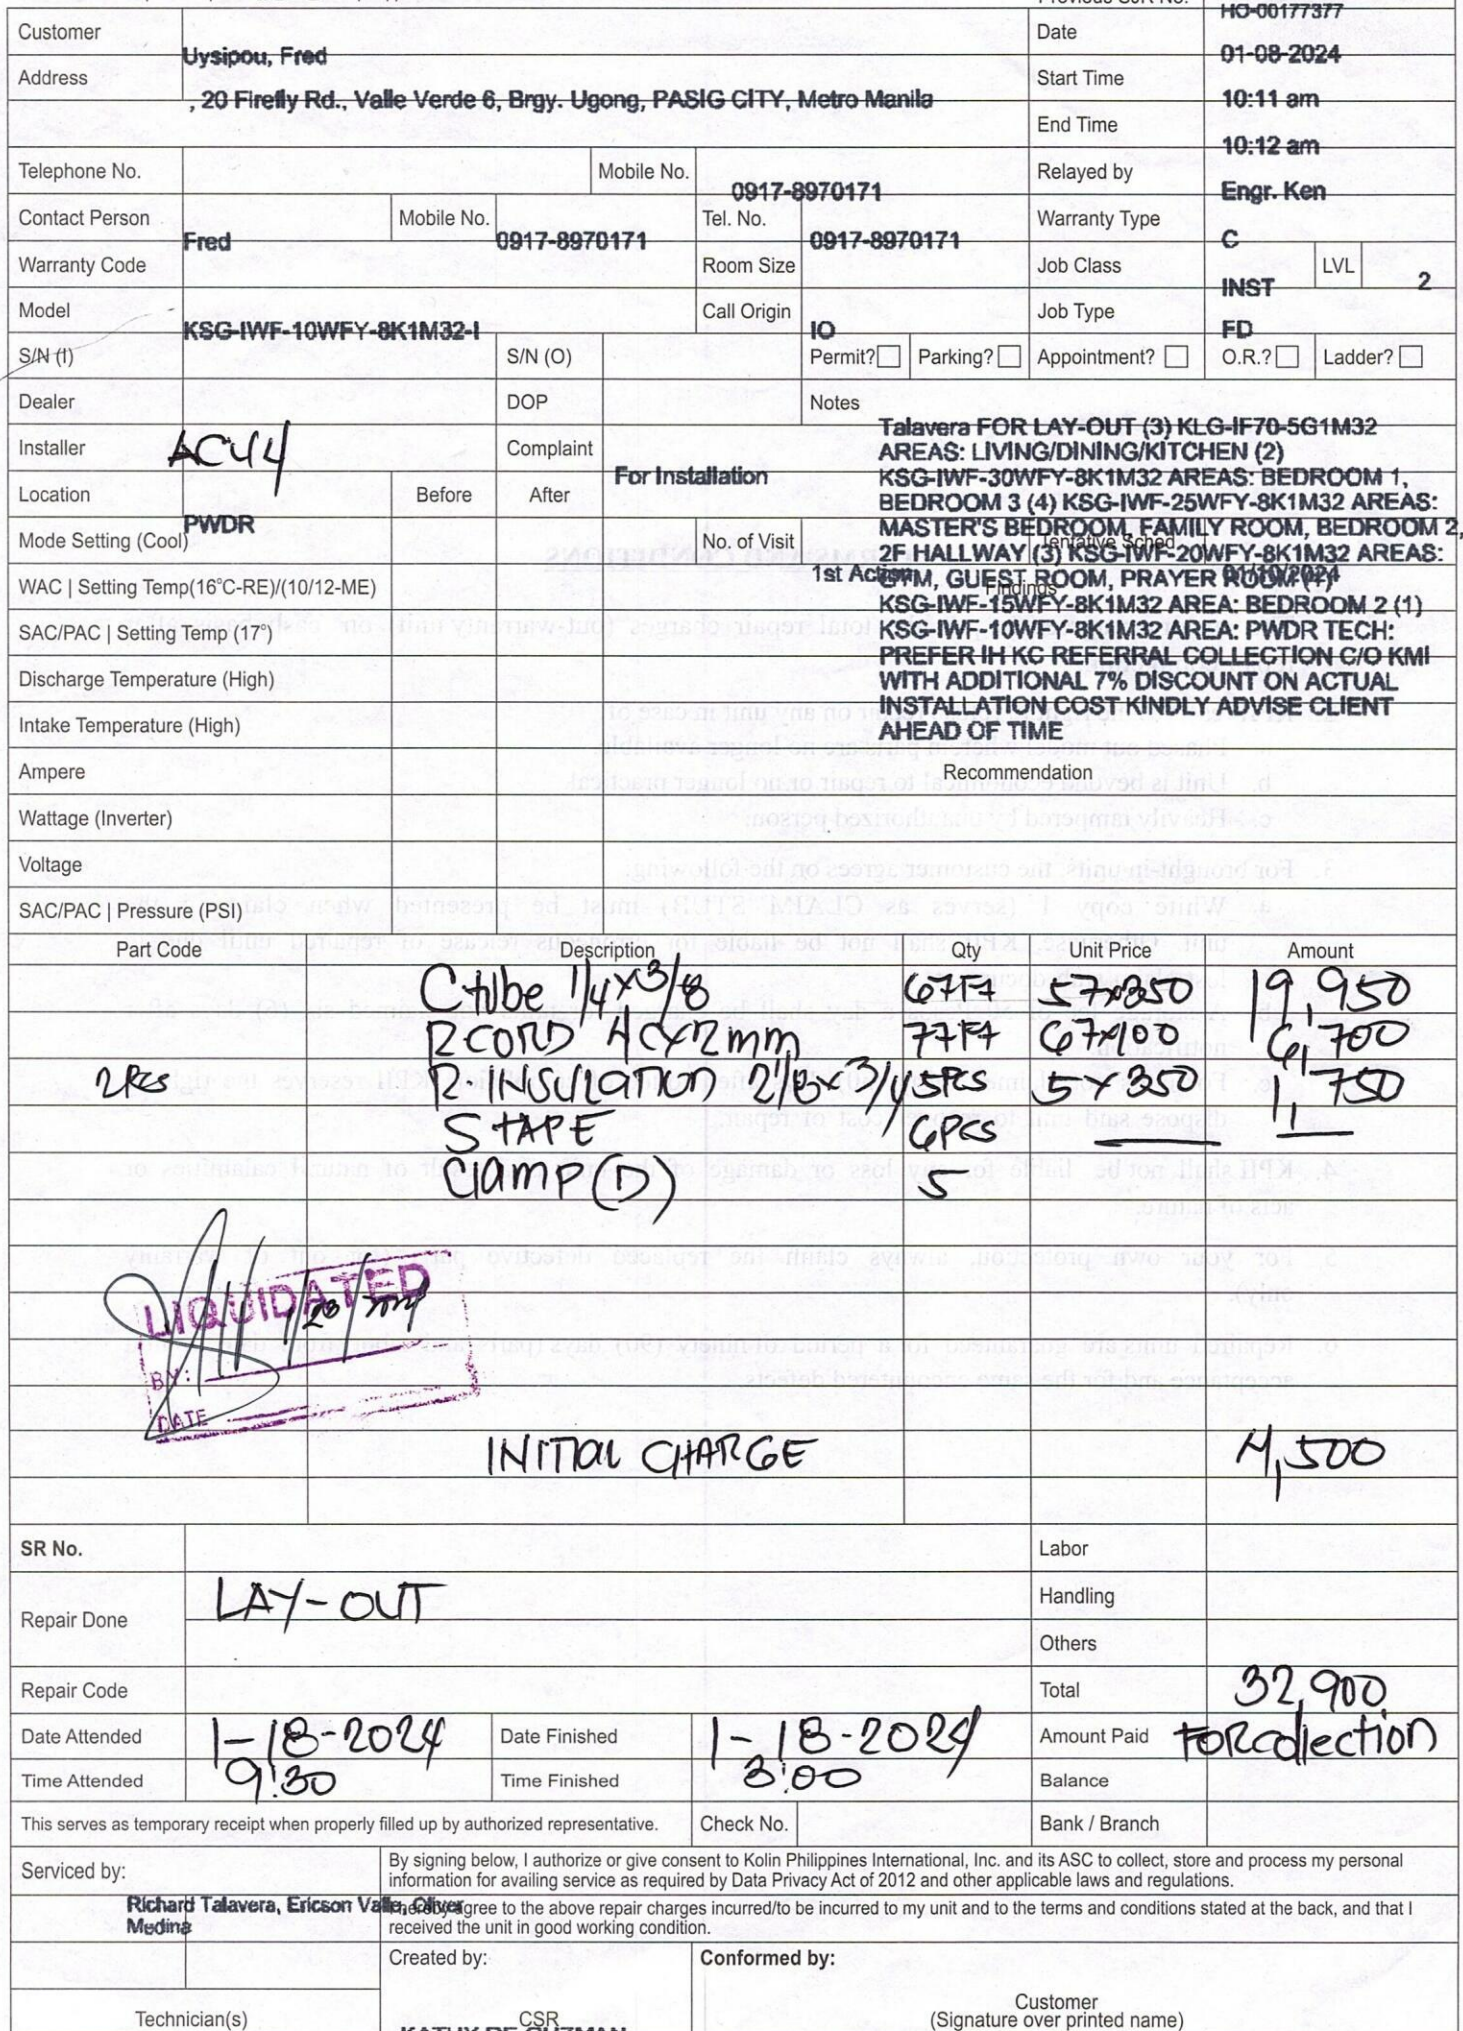 HO-00177377
Customer Uysipou, Fred Date 01-08-2024
Address , 20 Firefly Rd., Valle Verde 6, Brgy. Ugong, PASIG CITY, Metro Manila Start Time 10:11 am
End Time 10:12 am
Telephone No. Mobile No. 0917-8970171 Relayed by Engr. Ken
Contact Person Fred Mobile No. 0917-8970171 Tel. No. 0917-8970171 Warranty Type C
Warranty Code Room Size Job Class INST LVL 2
Model KSG-IWF-10WFY-8K1M32-I Call Origin IO Job Type FD
S/N (I) S/N (O) Permit? Parking? Appointment? O.R.? Ladder?
Dealer DOP Notes
Talavera FOR LAY-OUT (3) KLG-IF70-5G1M32
AREAS: LIVING/DINING/KITCHEN (2)
KSG-IWF-30WFY-8K1M32 AREAS: BEDROOM 1,
BEDROOM 3 (4) KSG-IWF-25WFY-8K1M32 AREAS:
MASTER'S BEDROOM, FAMILY ROOM, BEDROOM 2,
2F HALLWAY (3) KSG-IWF-20WFY-8K1M32 AREAS:
GYM, GUEST ROOM, PRAYER ROOM (1)
KSG-IWF-15WFY-8K1M32 AREA: BEDROOM 2 (1)
KSG-IWF-10WFY-8K1M32 AREA: PWDR TECH:
PREFER IH KC REFERRAL COLLECTION C/O KMI
WITH ADDITIONAL 7% DISCOUNT ON ACTUAL
INSTALLATION COST KINDLY ADVISE CLIENT
AHEAD OF TIME
Installer AC44 Complaint For Installation
Location PWDR Before After
Mode Setting (Cool) No. of Visit 1st Action Tentative Sched 01/10/2024
WAC | Setting Temp(16°C-RE)/(10/12-ME) Findings
SAC/PAC | Setting Temp (17°)
Discharge Temperature (High)
Intake Temperature (High)
Ampere Recommendation
Wattage (Inverter)
Voltage
SAC/PAC | Pressure (PSI)
Part Code Description Qty Unit Price Amount
Ctube 1/4x3/8 67FT 57x350 19,950
RCORD 4Cx2mm 77FT 67x100 6,700
2PCS R-INSULATION 2 1/8x3/4 5PCS 5x350 1,750
S TAPE 6PCS
Clamp (D) 5
LIQUIDATED
BY:
DATE
INITIAL CHARGE 4,500
SR No. Labor
Repair Done LAY-OUT Handling
Others
Repair Code Total 32,900
Date Attended 1-18-2024 Date Finished 1-18-2024 Amount Paid FOR collection
Time Attended 9:30 Time Finished 3:00 Balance
This serves as temporary receipt when properly filled up by authorized representative. Check No. Bank / Branch
Serviced by: By signing below, I authorize or give consent to Kolin Philippines International, Inc. and its ASC to collect, store and process my personal
information for availing service as required by Data Privacy Act of 2012 and other applicable laws and regulations.
Richard Talavera, Ericson Valle, Oliver
Medina
I hereby agree to the above repair charges incurred/to be incurred to my unit and to the terms and conditions stated at the back, and that I
received the unit in good working condition.
Created by: Conformed by:
Technician(s) CSR Customer
KATHY DE GUZMAN (Signature over printed name)